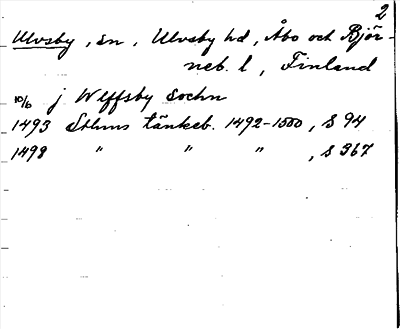 2
Ulvsby, sn, Ulvsby hd, Åbo och Björ-
neb. l, Finland
10/6 j Wlffsby sochn
1493 Sthms tänkeb. 1492-1500, S 94
1498 " " " , S 367